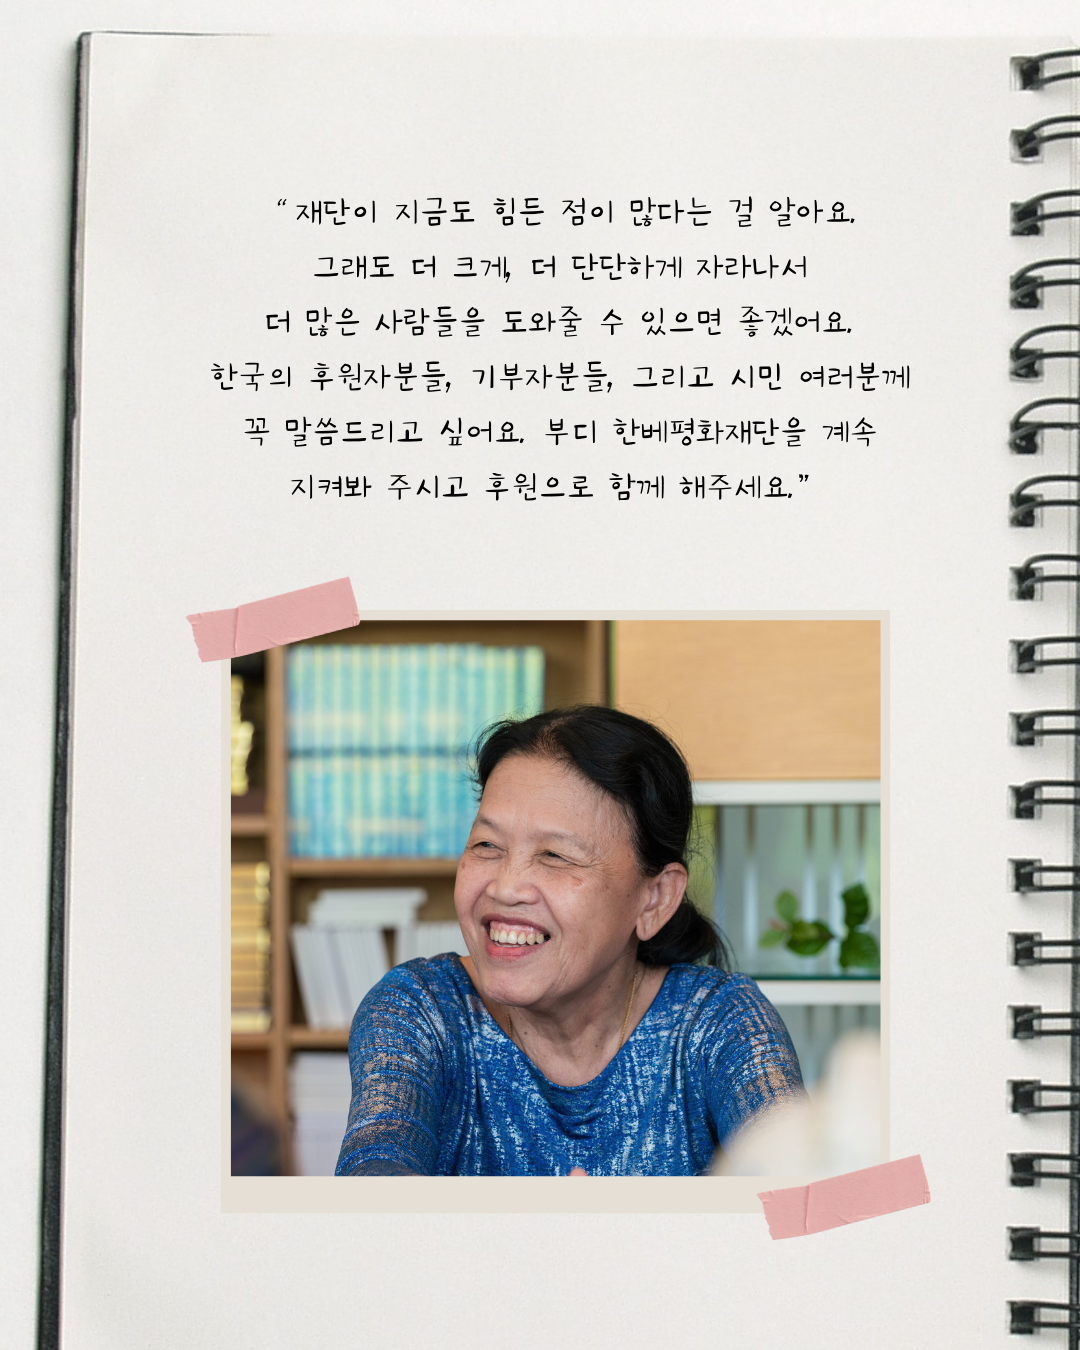 “ 재단이 지금도 힘든 점이 많다는 걸 알아요.
그래도 더 크게, 더 단단하게 자라나서
더 많은 사람들을 도와줄 수 있으면 좋겠어요.
한국의 후원자분들, 기부자분들, 그리고 시민 여러분께
꼭 말씀드리고 싶어요. 부디 한베평화재단을 계속
지켜봐 주시고 후원으로 함께 해주세요.”